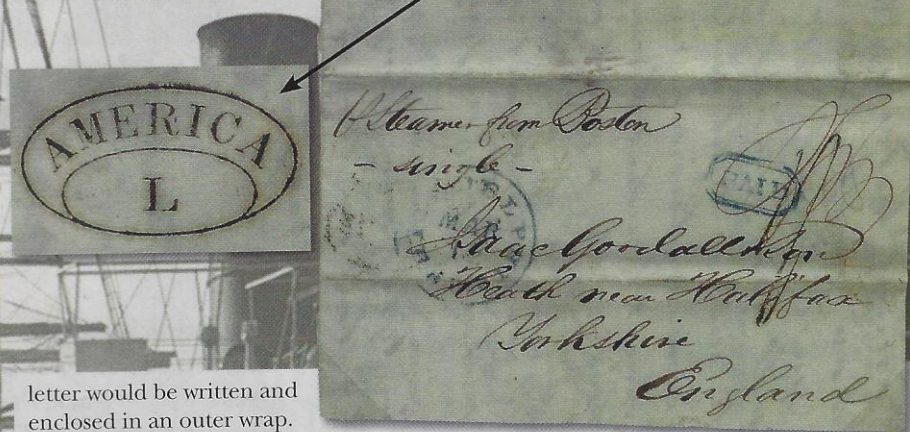 AMERICA
L
Steamer from Boston
- single -
PAID
Isaac
Heath near Halifax
Yorkshire
England
letter would be written and
enclosed in an outer wrap.